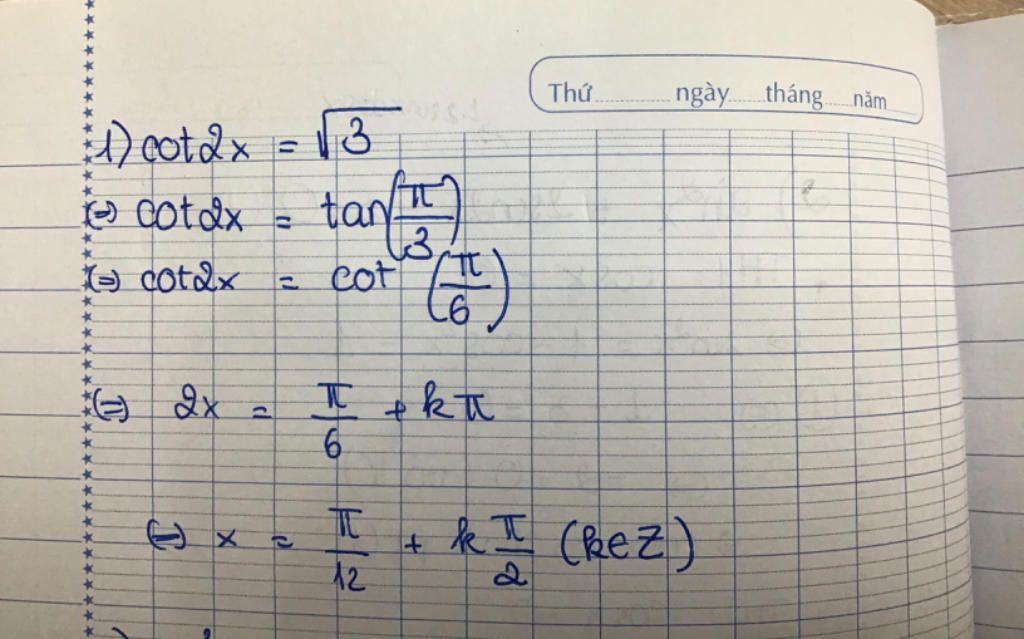 Thứ ngày tháng năm
1) cot2x = √3
⇔ cot2x = tan(π/3)
⇔ cot2x = cot (π/6)
⇔ 2x = π/6 + kπ
⇔ x = π/12 + k π/2 (k∈Z)